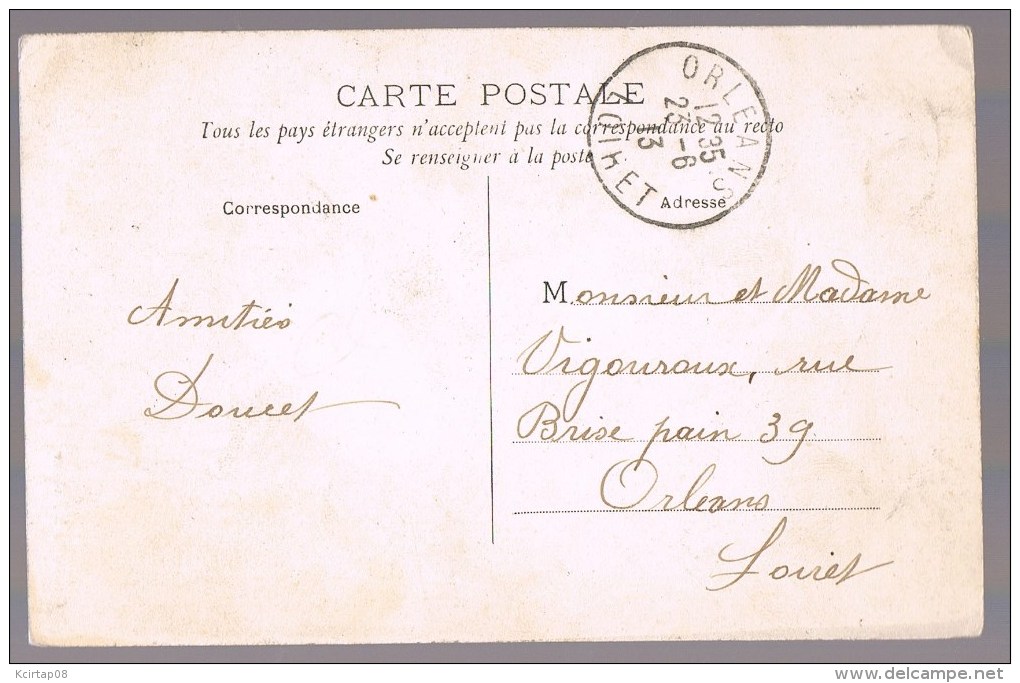 CARTE POSTALE
Tous les pays étrangers n'acceptent pas la correspondance au recto
Se renseigner à la poste
ORLEANS
12 35
23 -6
3
LOIRET
Correspondance
Adresse
Amitiés
Doucet
Monsieur et Madame
Vigouroux, rue
Brise pain 39
Orleans
Loiret
Kcirtap08
www.delcampe.net